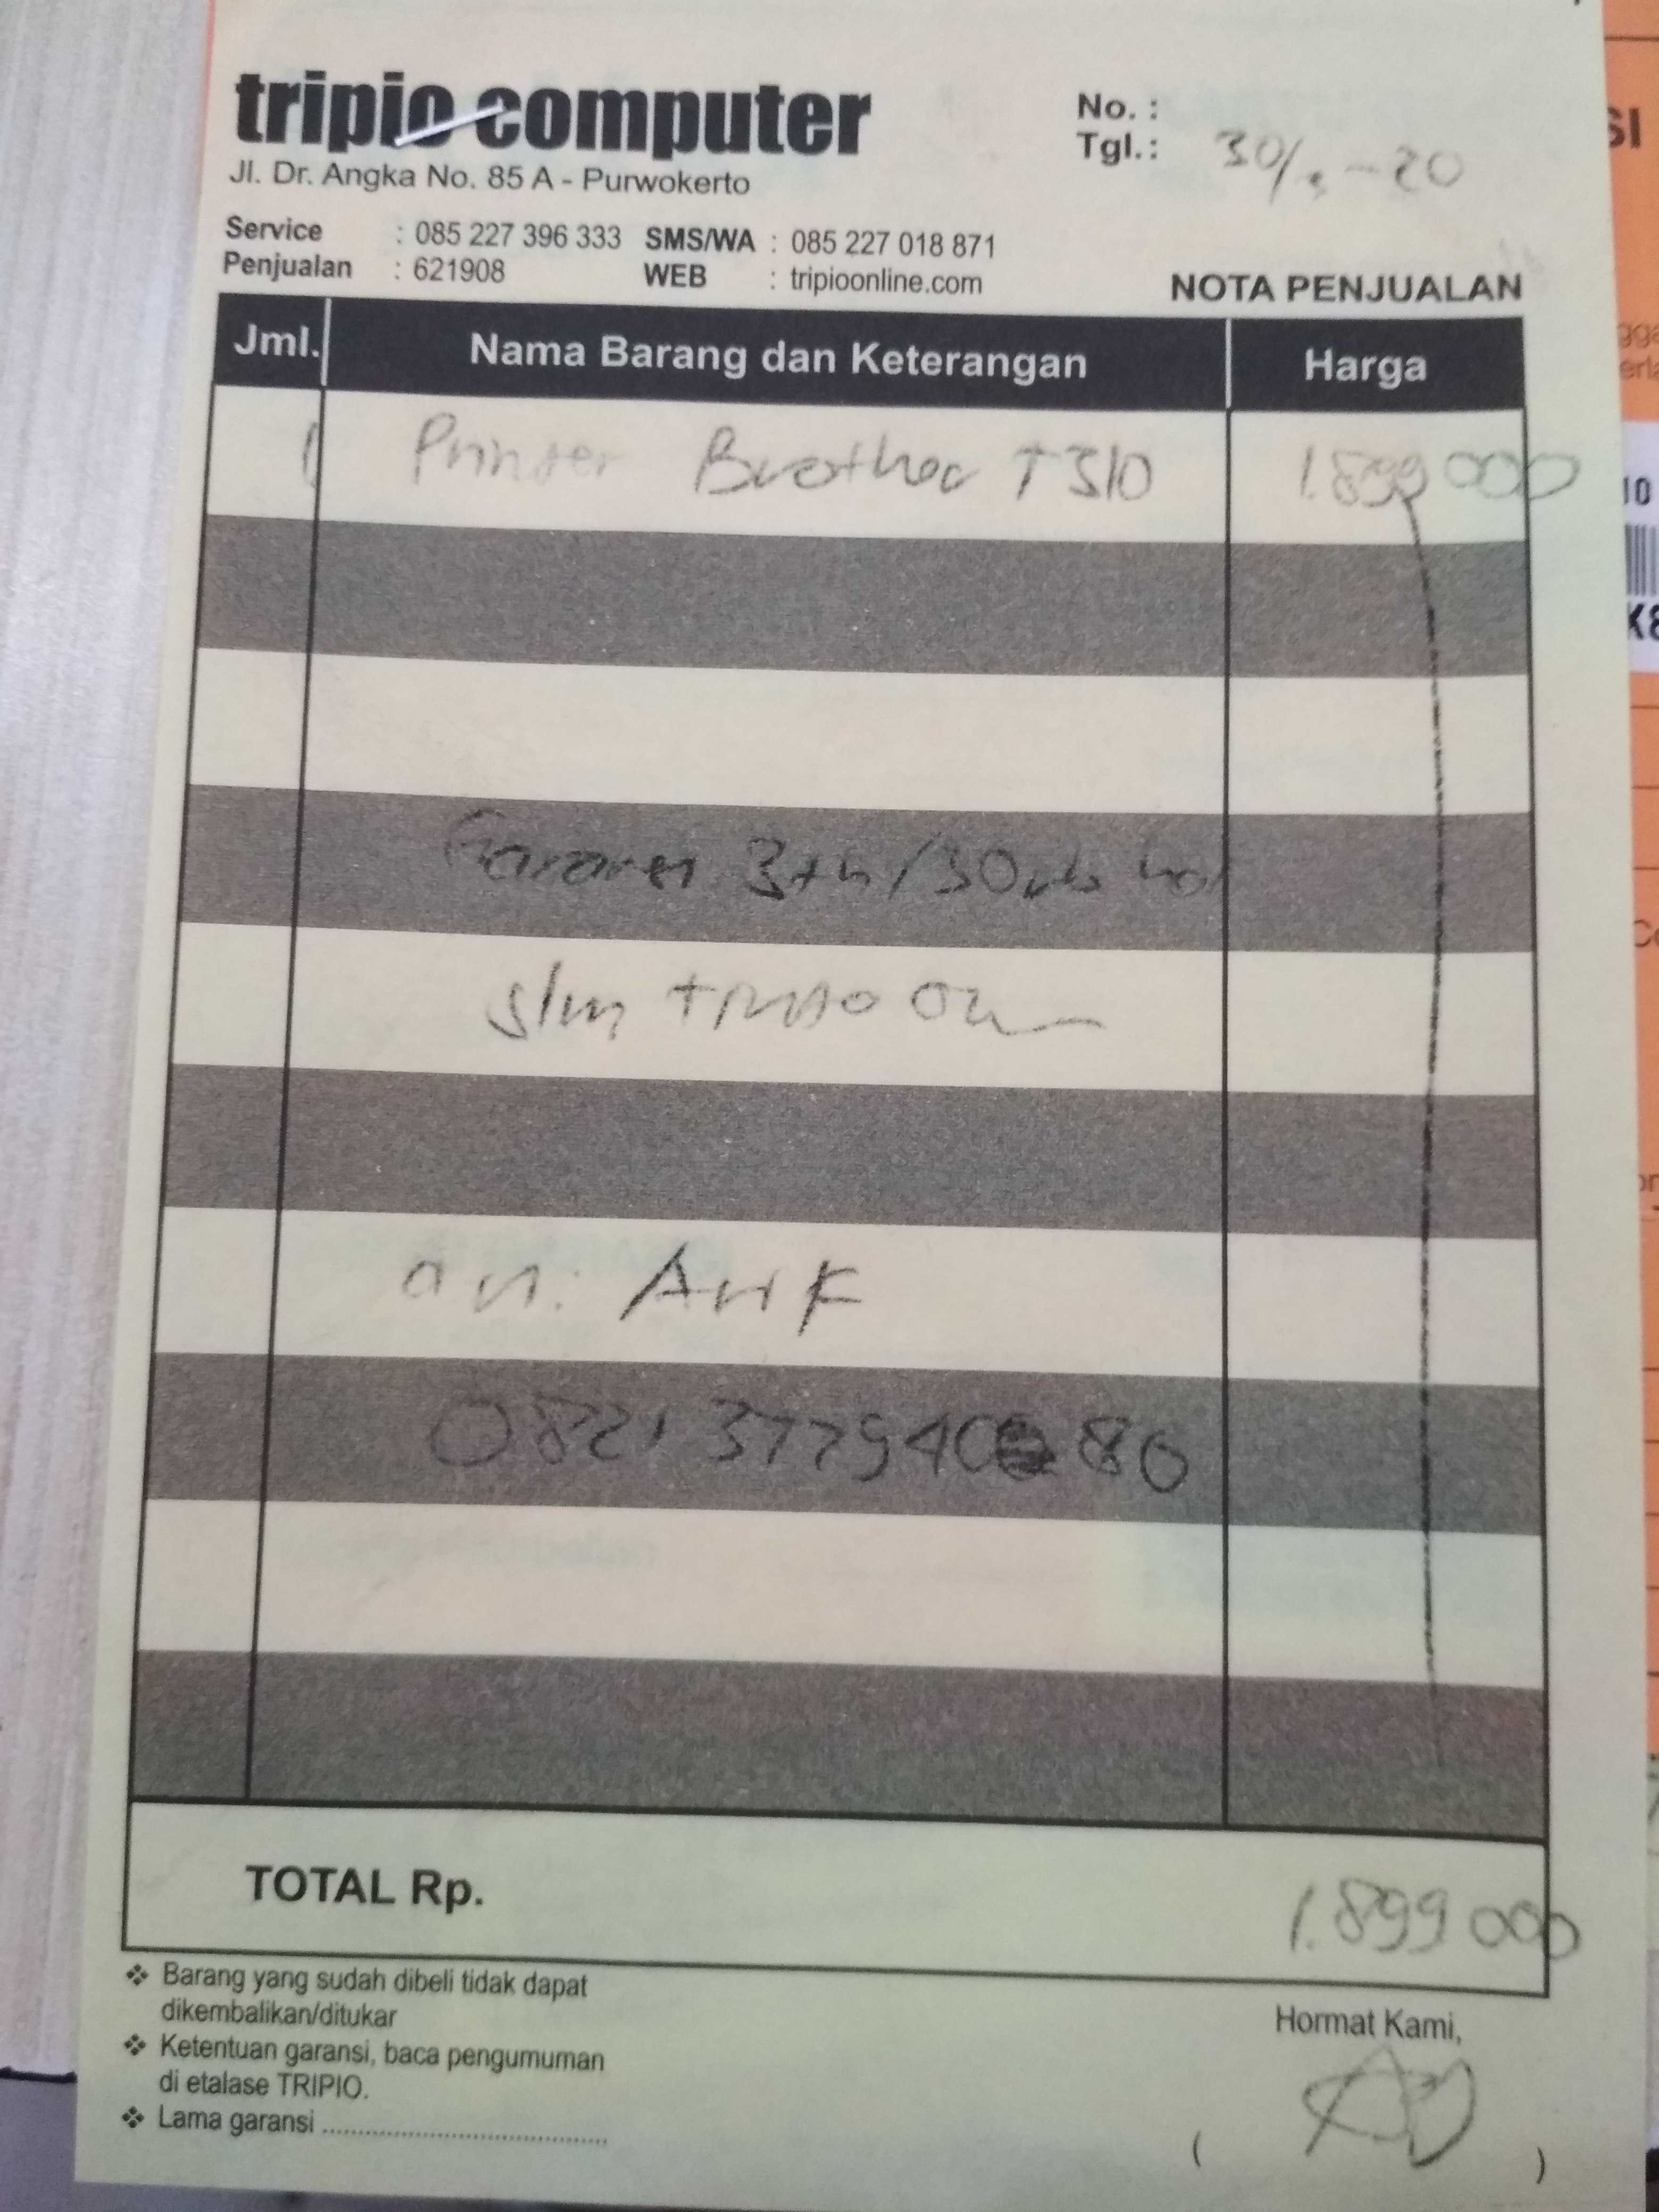 tripio computer
Jl. Dr. Angka No. 85 A - Purwokerto
No. :
Tgl. : 30/ -20
Service : 085 227 396 333 SMS/WA : 085 227 018 871
Penjualan : 621908 WEB : tripioonline.com
NOTA PENJUALAN
Jml. Nama Barang dan Keterangan Harga
1 Printer Brother T310 1.899 000
Garansi 3th/30rb
a n. Arif
TOTAL Rp. 1.899 000
❖ Barang yang sudah dibeli tidak dapat
dikembalikan/ditukar
❖ Ketentuan garansi, baca pengumuman
di etalase TRIPIO.
❖ Lama garansi
Hormat Kami,
( )
SI
10